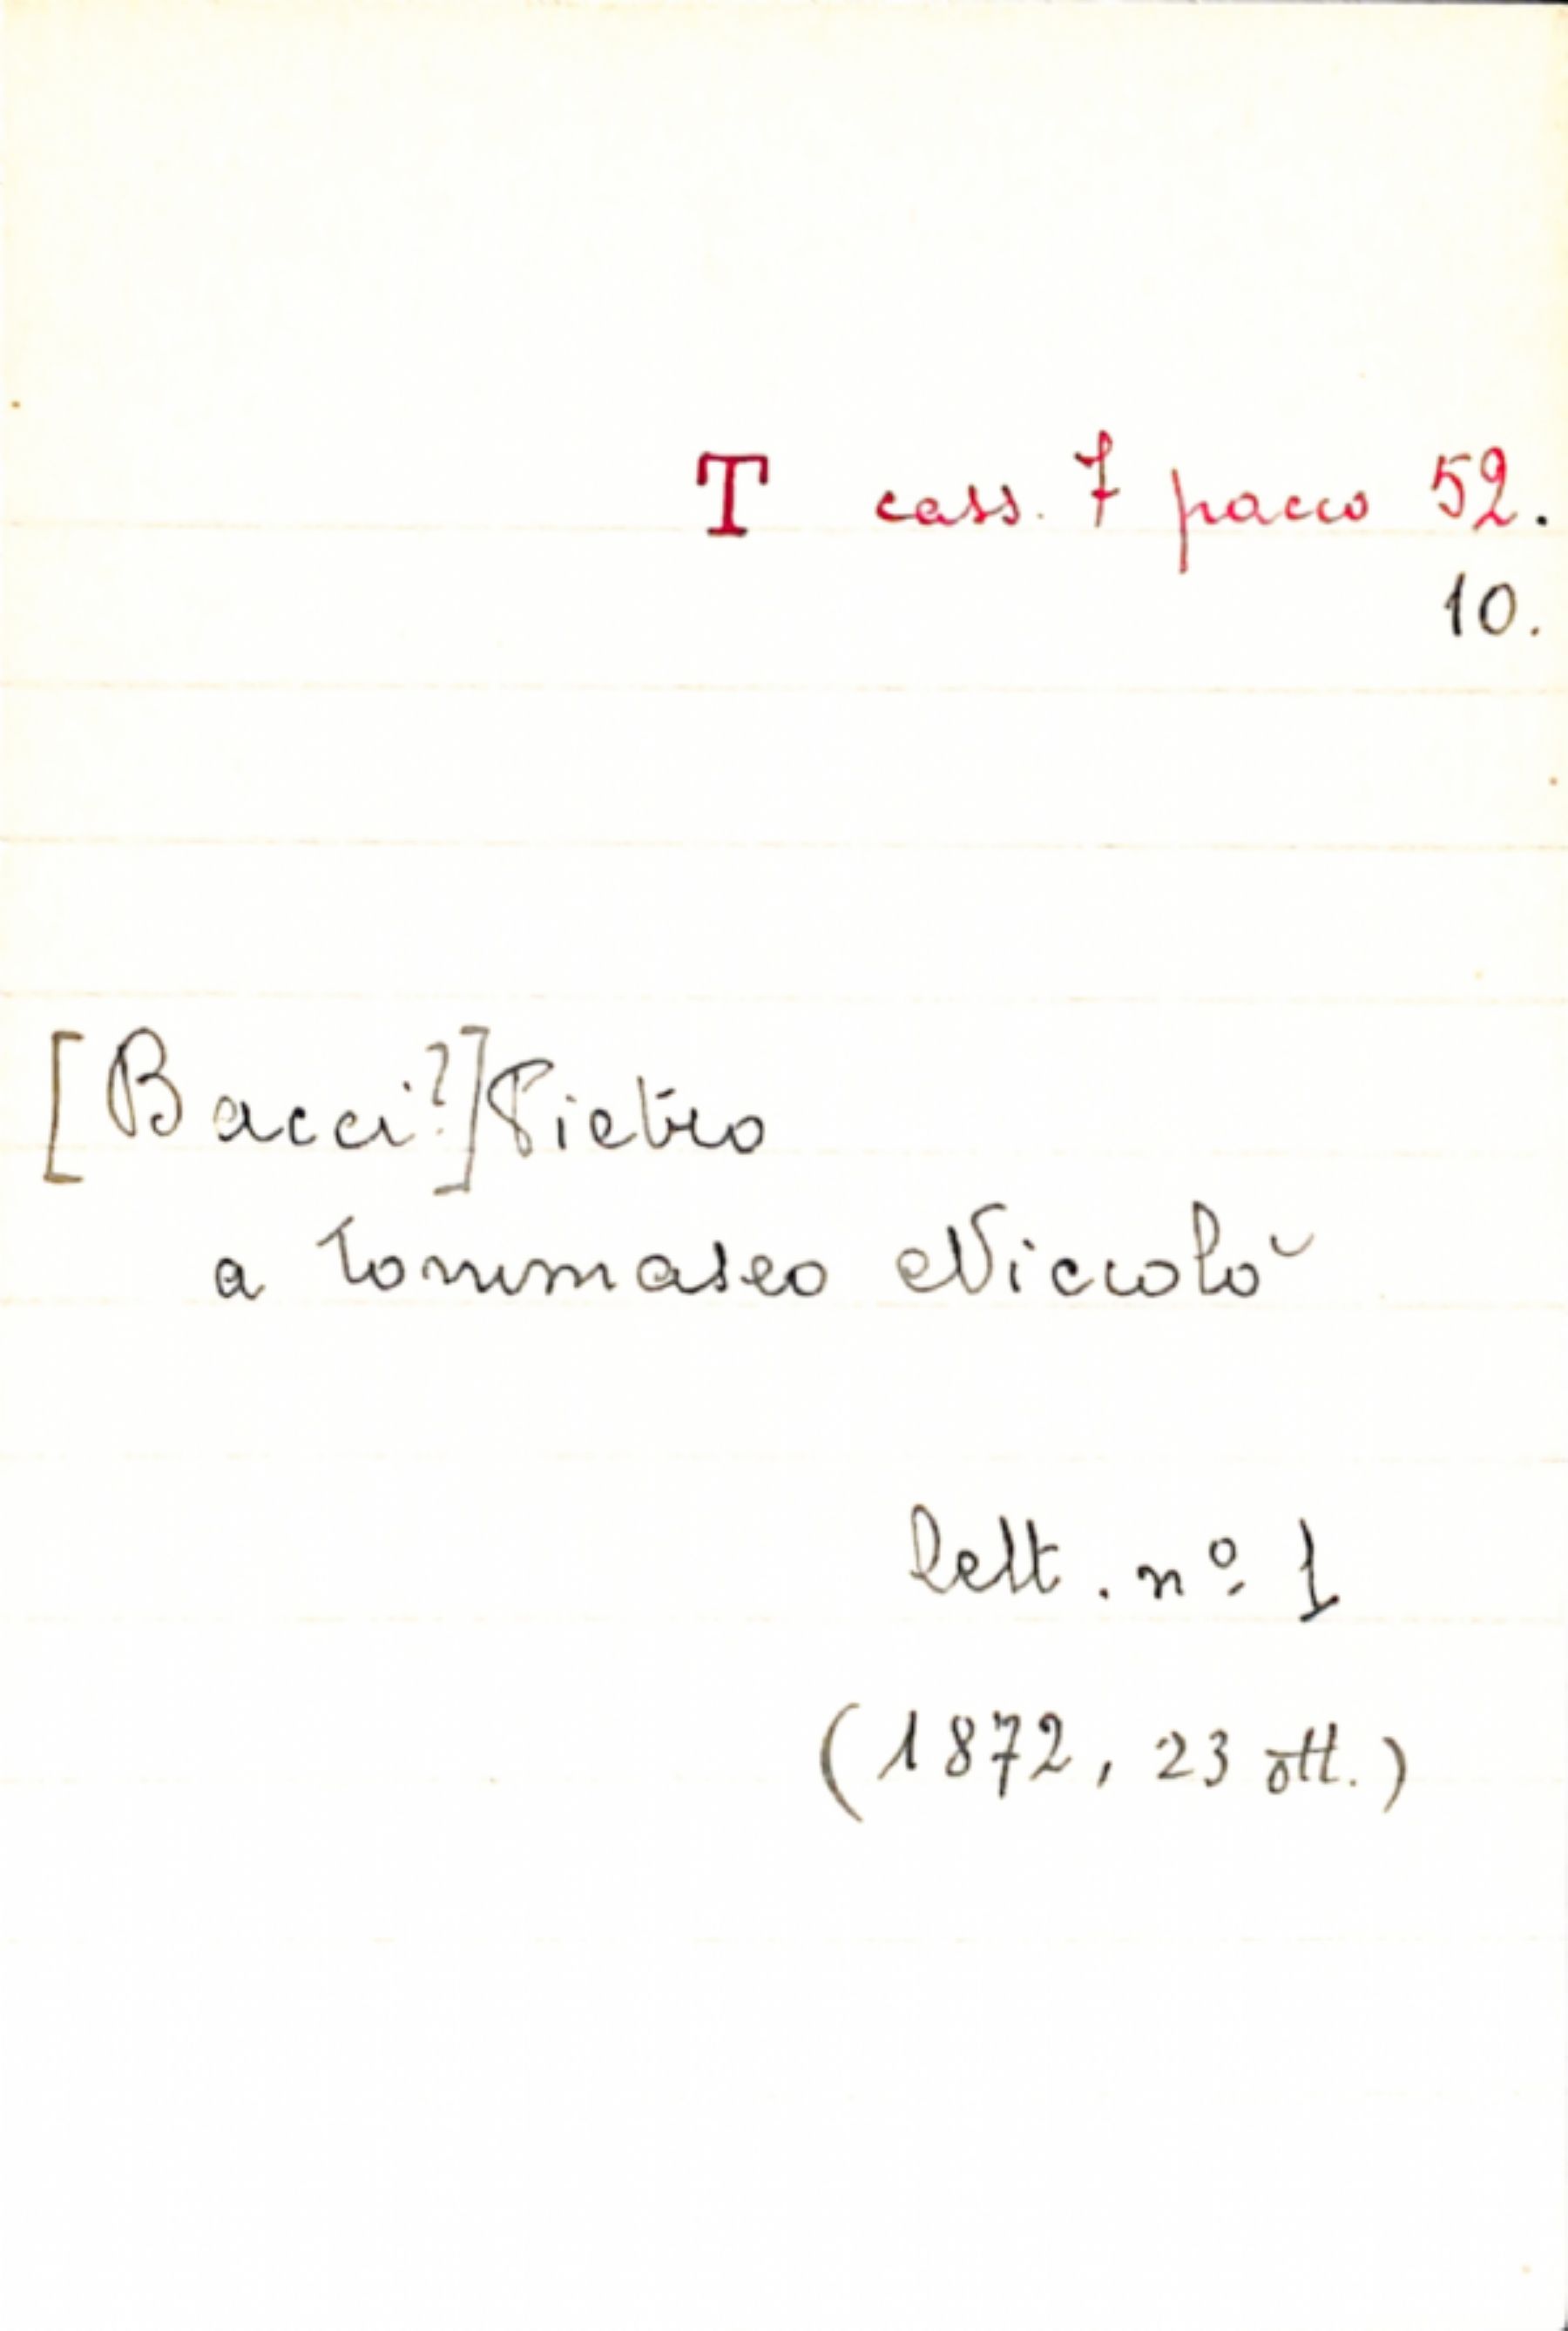 T cass. 7 pacco 52.
10.
[Bacci?] Pietro
a Tommaseo Niccolò
lett. nº 1
(1872, 23 ott.)